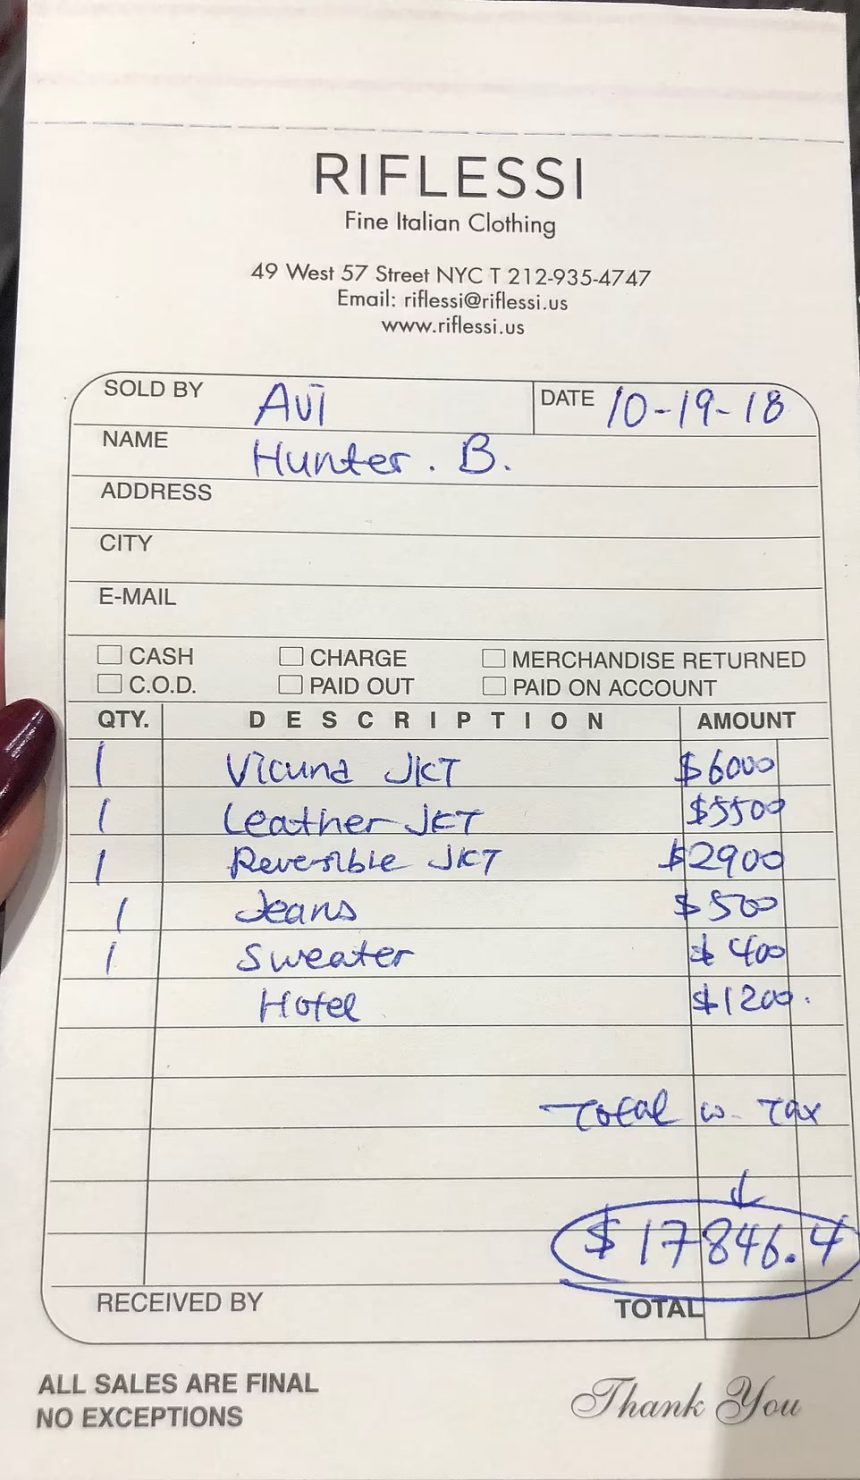 RIFLESSI
Fine Italian Clothing
49 West 57 Street NYC T 212-935-4747
Email: riflessi@riflessi.us
www.riflessi.us
SOLD BY Avi DATE 10-19-18
NAME Hunter. B.
ADDRESS
CITY
E-MAIL
CASH CHARGE MERCHANDISE RETURNED
C.O.D. PAID OUT PAID ON ACCOUNT
QTY. DESCRIPTION AMOUNT
1 Vicuna JKT $6000
1 Leather JKT $5500
1 Reversible JKT $2900
1 Jeans $500
1 Sweater $400
Hotel $1200.
Total w. Tax
$17846.4
RECEIVED BY TOTAL
ALL SALES ARE FINAL
NO EXCEPTIONS
Thank You